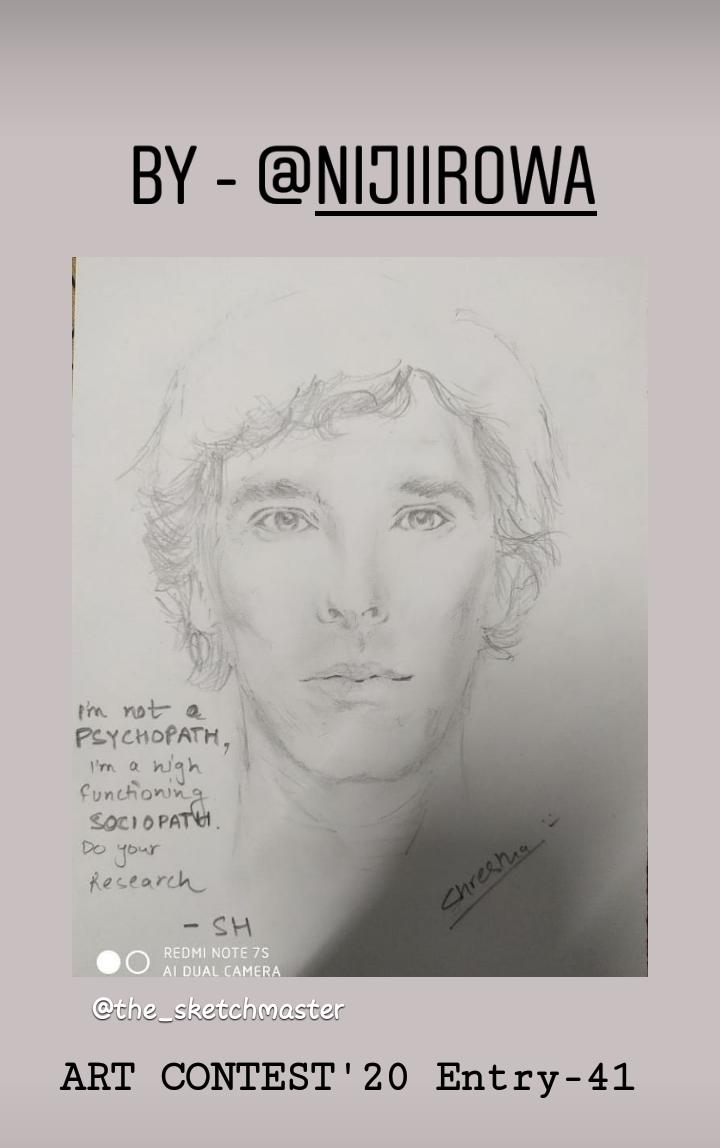 BY - @NIJIIROWA
I'm not a
PSYCHOPATH,
I'm a high
functioning
SOCIOPATH.
Do your
Research
- SH
REDMI NOTE 7S
AI DUAL CAMERA
@the_sketchmaster
ART CONTEST'20 Entry-41